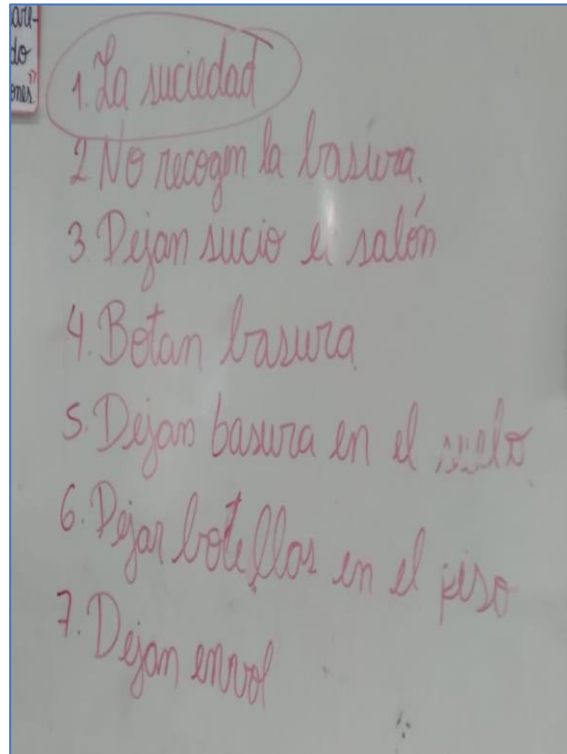 1. La suciedad
2 No recogen la basura.
3. Dejan sucio el salón
4. Botan basura
5. Dejan basura en el suelo
6. Dejan botellas en el piso
7. Dejan envol